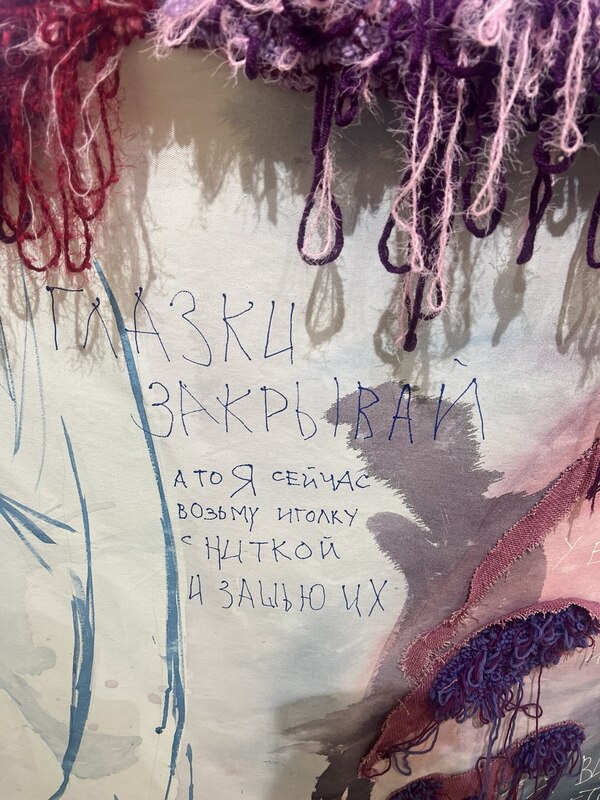 ГЛАЗКИ
ЗАКРЫВАЙ
А ТО Я СЕЙЧАС
ВОЗЬМУ ИГОЛКУ
С НИТКОЙ
И ЗАШЬЮ ИХ